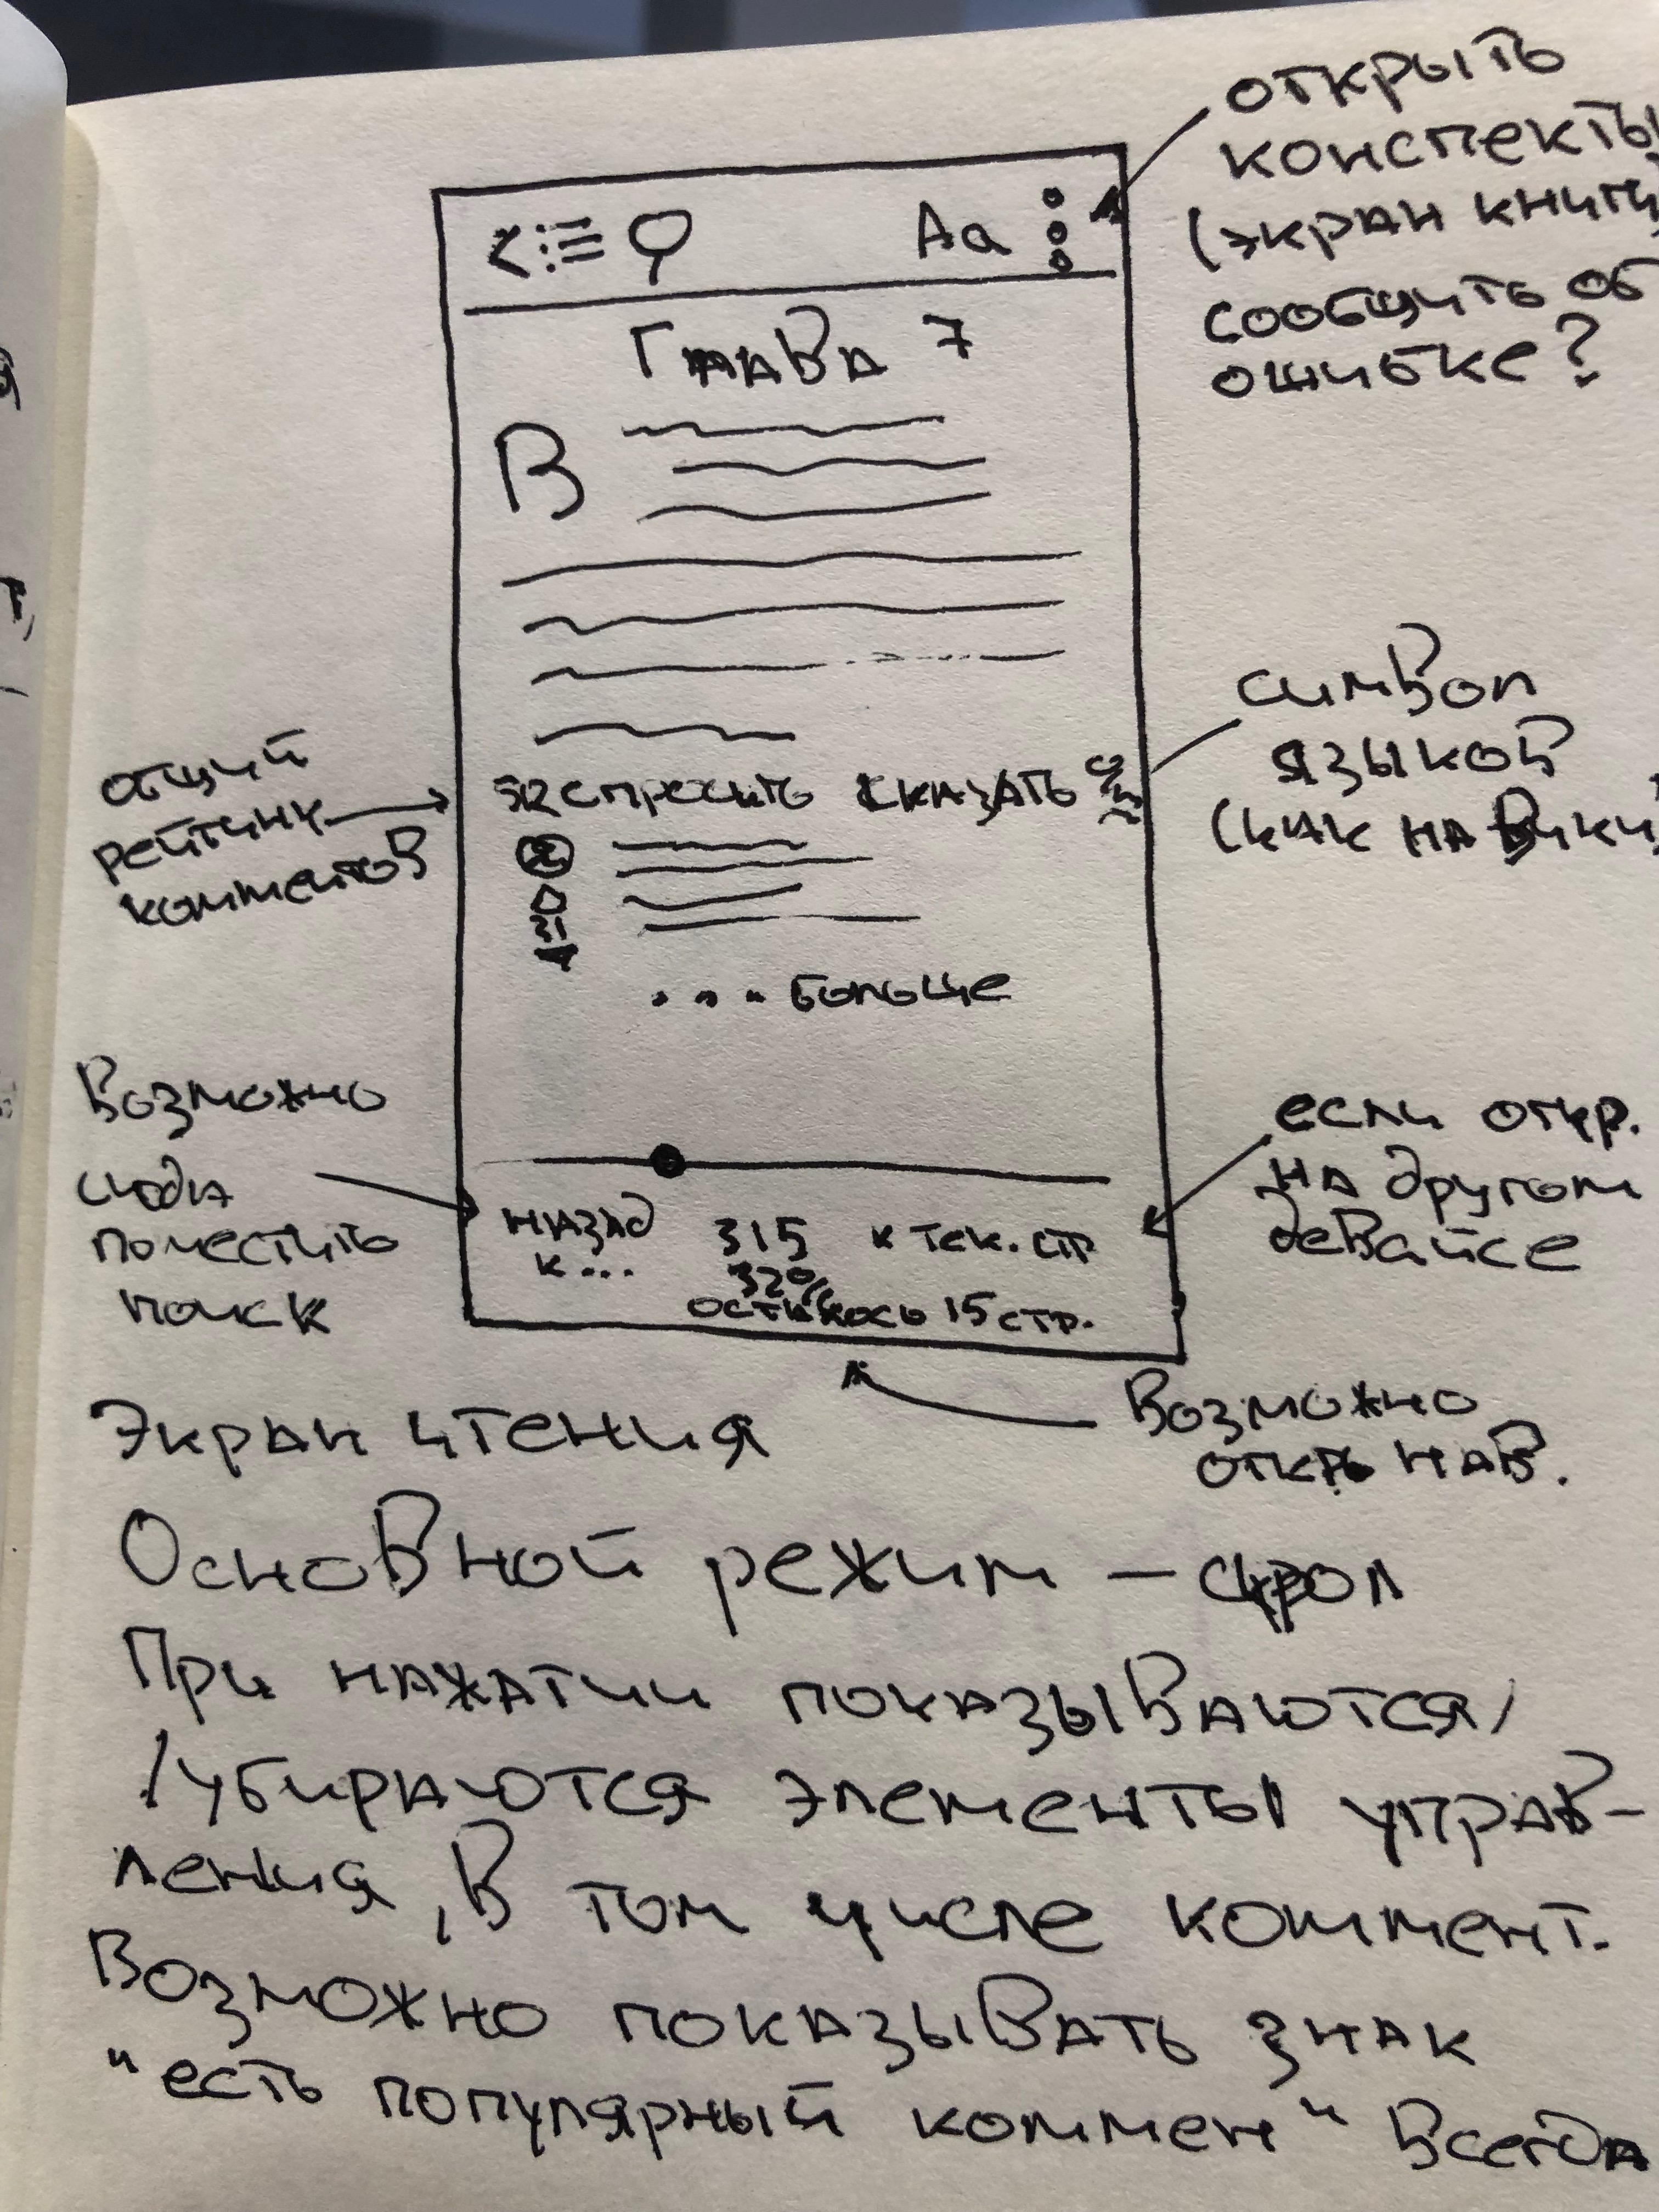 открыть
конспекты
(экран книги)
сообщить об
ошибке?
Аа
Глава 7
В
символ
языков
(как на Вики)
общий
рейтинг
комментов
32 спросить сказать
31
... больше
Возможно
сюда
поместить
поиск
если откр.
на другом
девайсе
назад
к...
315
32%
к тек. стр
осталось 15 стр.
Возможно
откр нав.
Экран чтения
Основной режим – скрол
При нажатии показываются/
/убираются элементы управ-
ления, в том числе коммент.
Возможно показывать знак
"есть популярный коммен" всегда